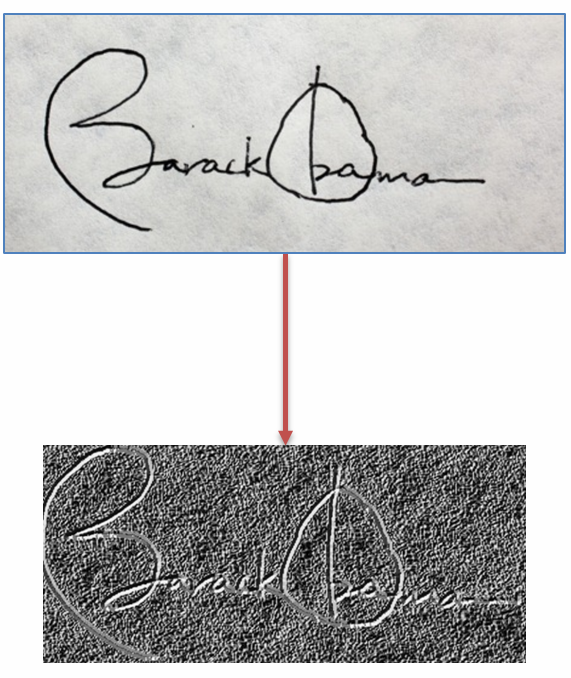 Barack Obama
Barack Obama